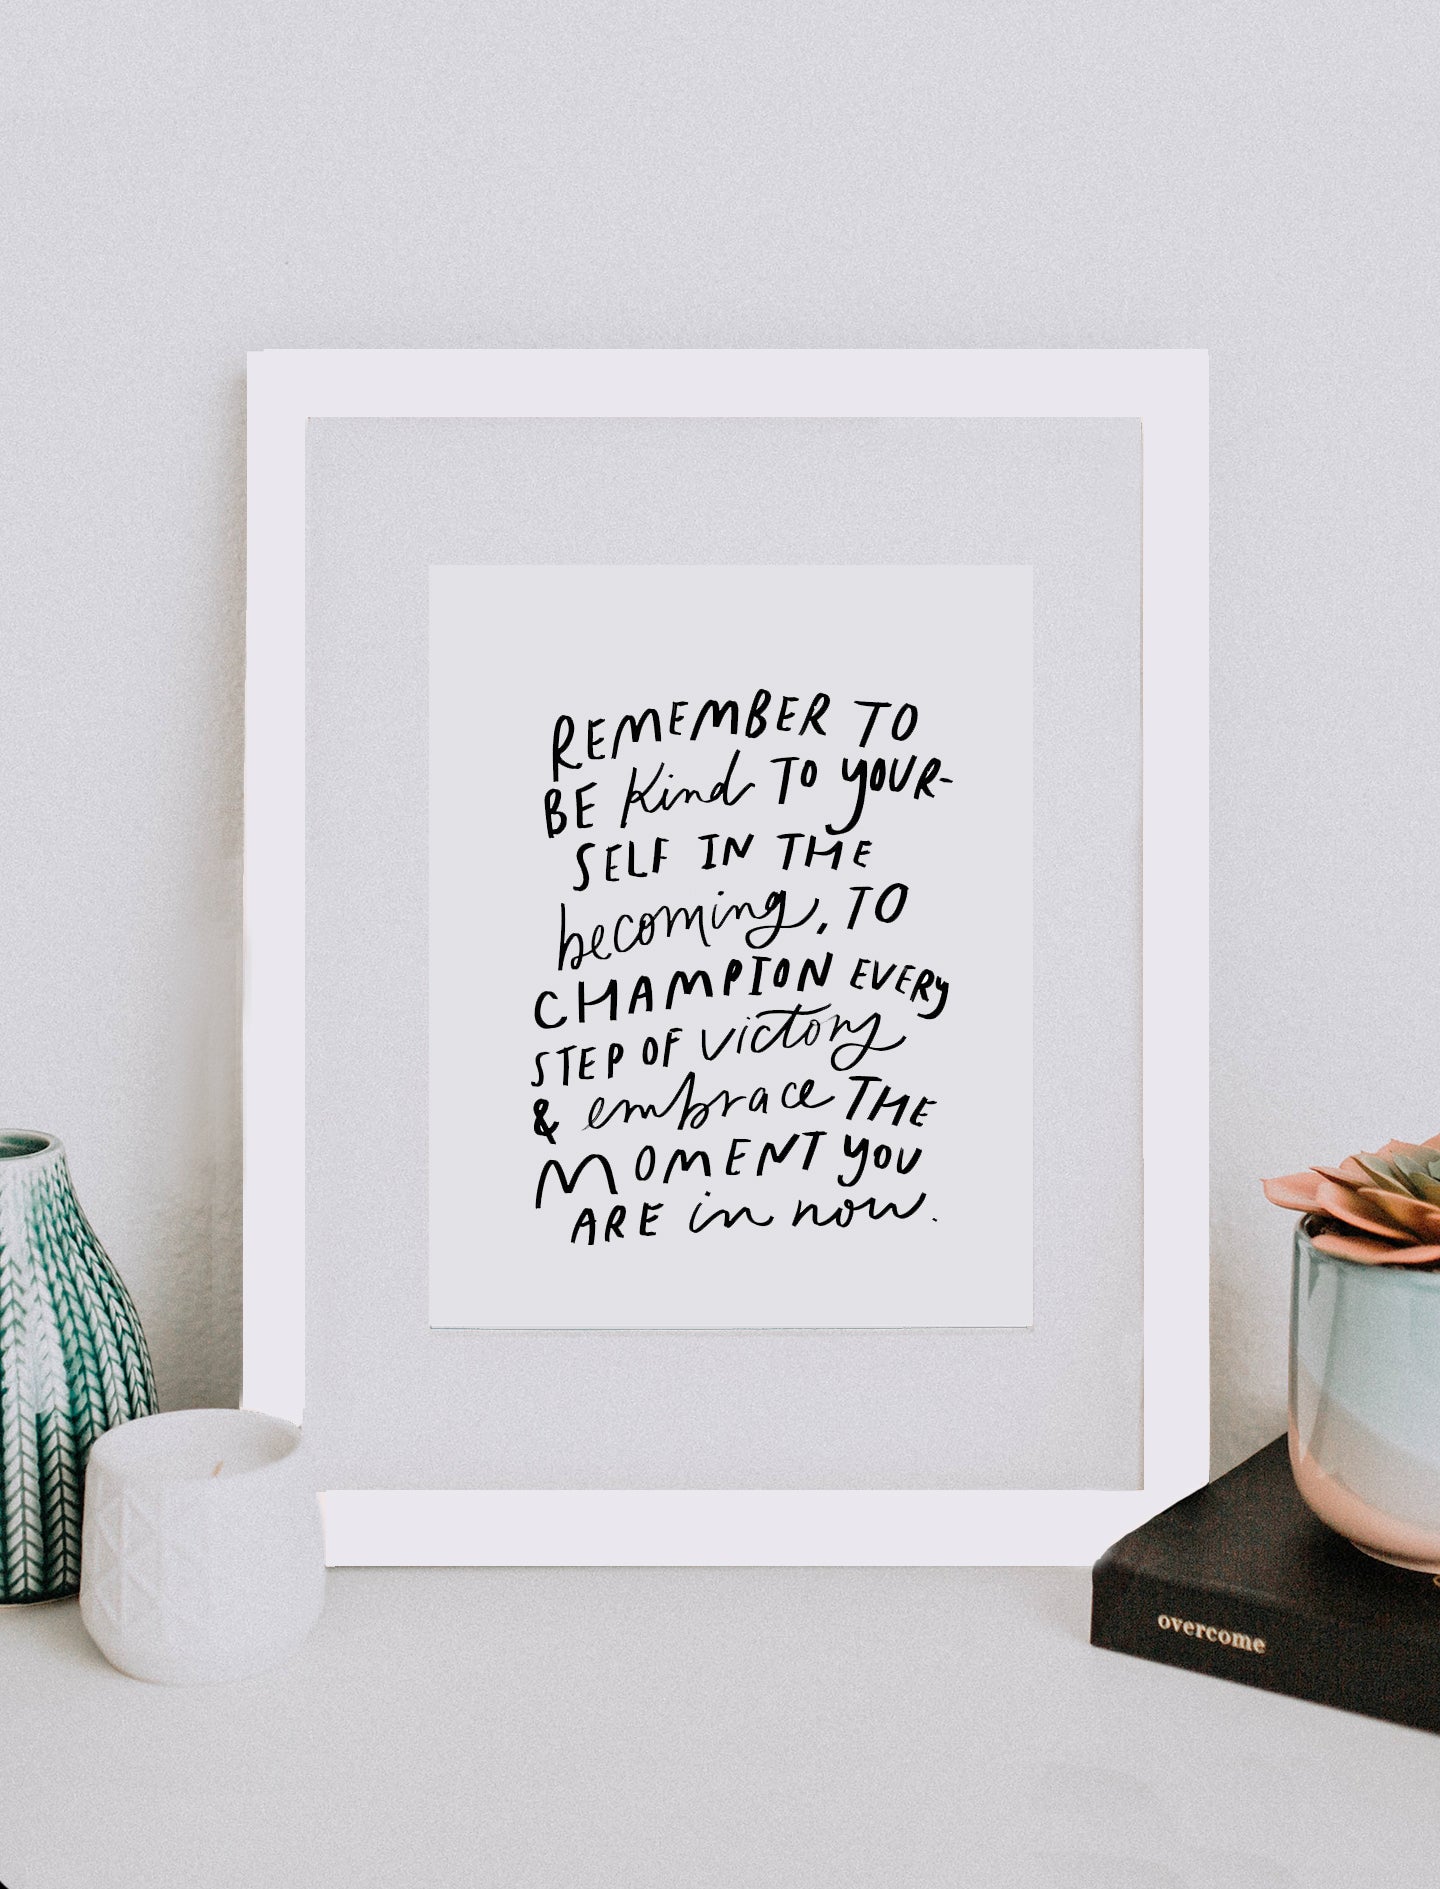 REMEMBER TO
BE Kind TO YOUR-
SELF IN THE
becoming, TO
CHAMPION EVERY
STEP OF victory
& embrace THE
MOMENT YOU
ARE in now.
overcome